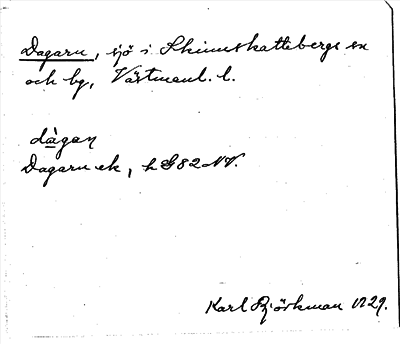 Dagarn, sjö i Skinnskattebergs sn
och bg, Västmanl. l.
dàgaṇ
Dagarn ek, h G 82 NV.
Karl Björkman 1929.